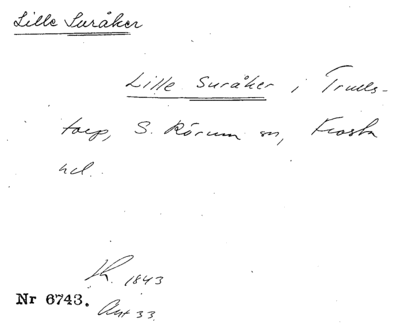 Lille Suråker
Lille Suråker i Truels-
torp, S. Rörum sn, Frosta
hd.
Lh. 1843
Nr 6743.
Akt 33.